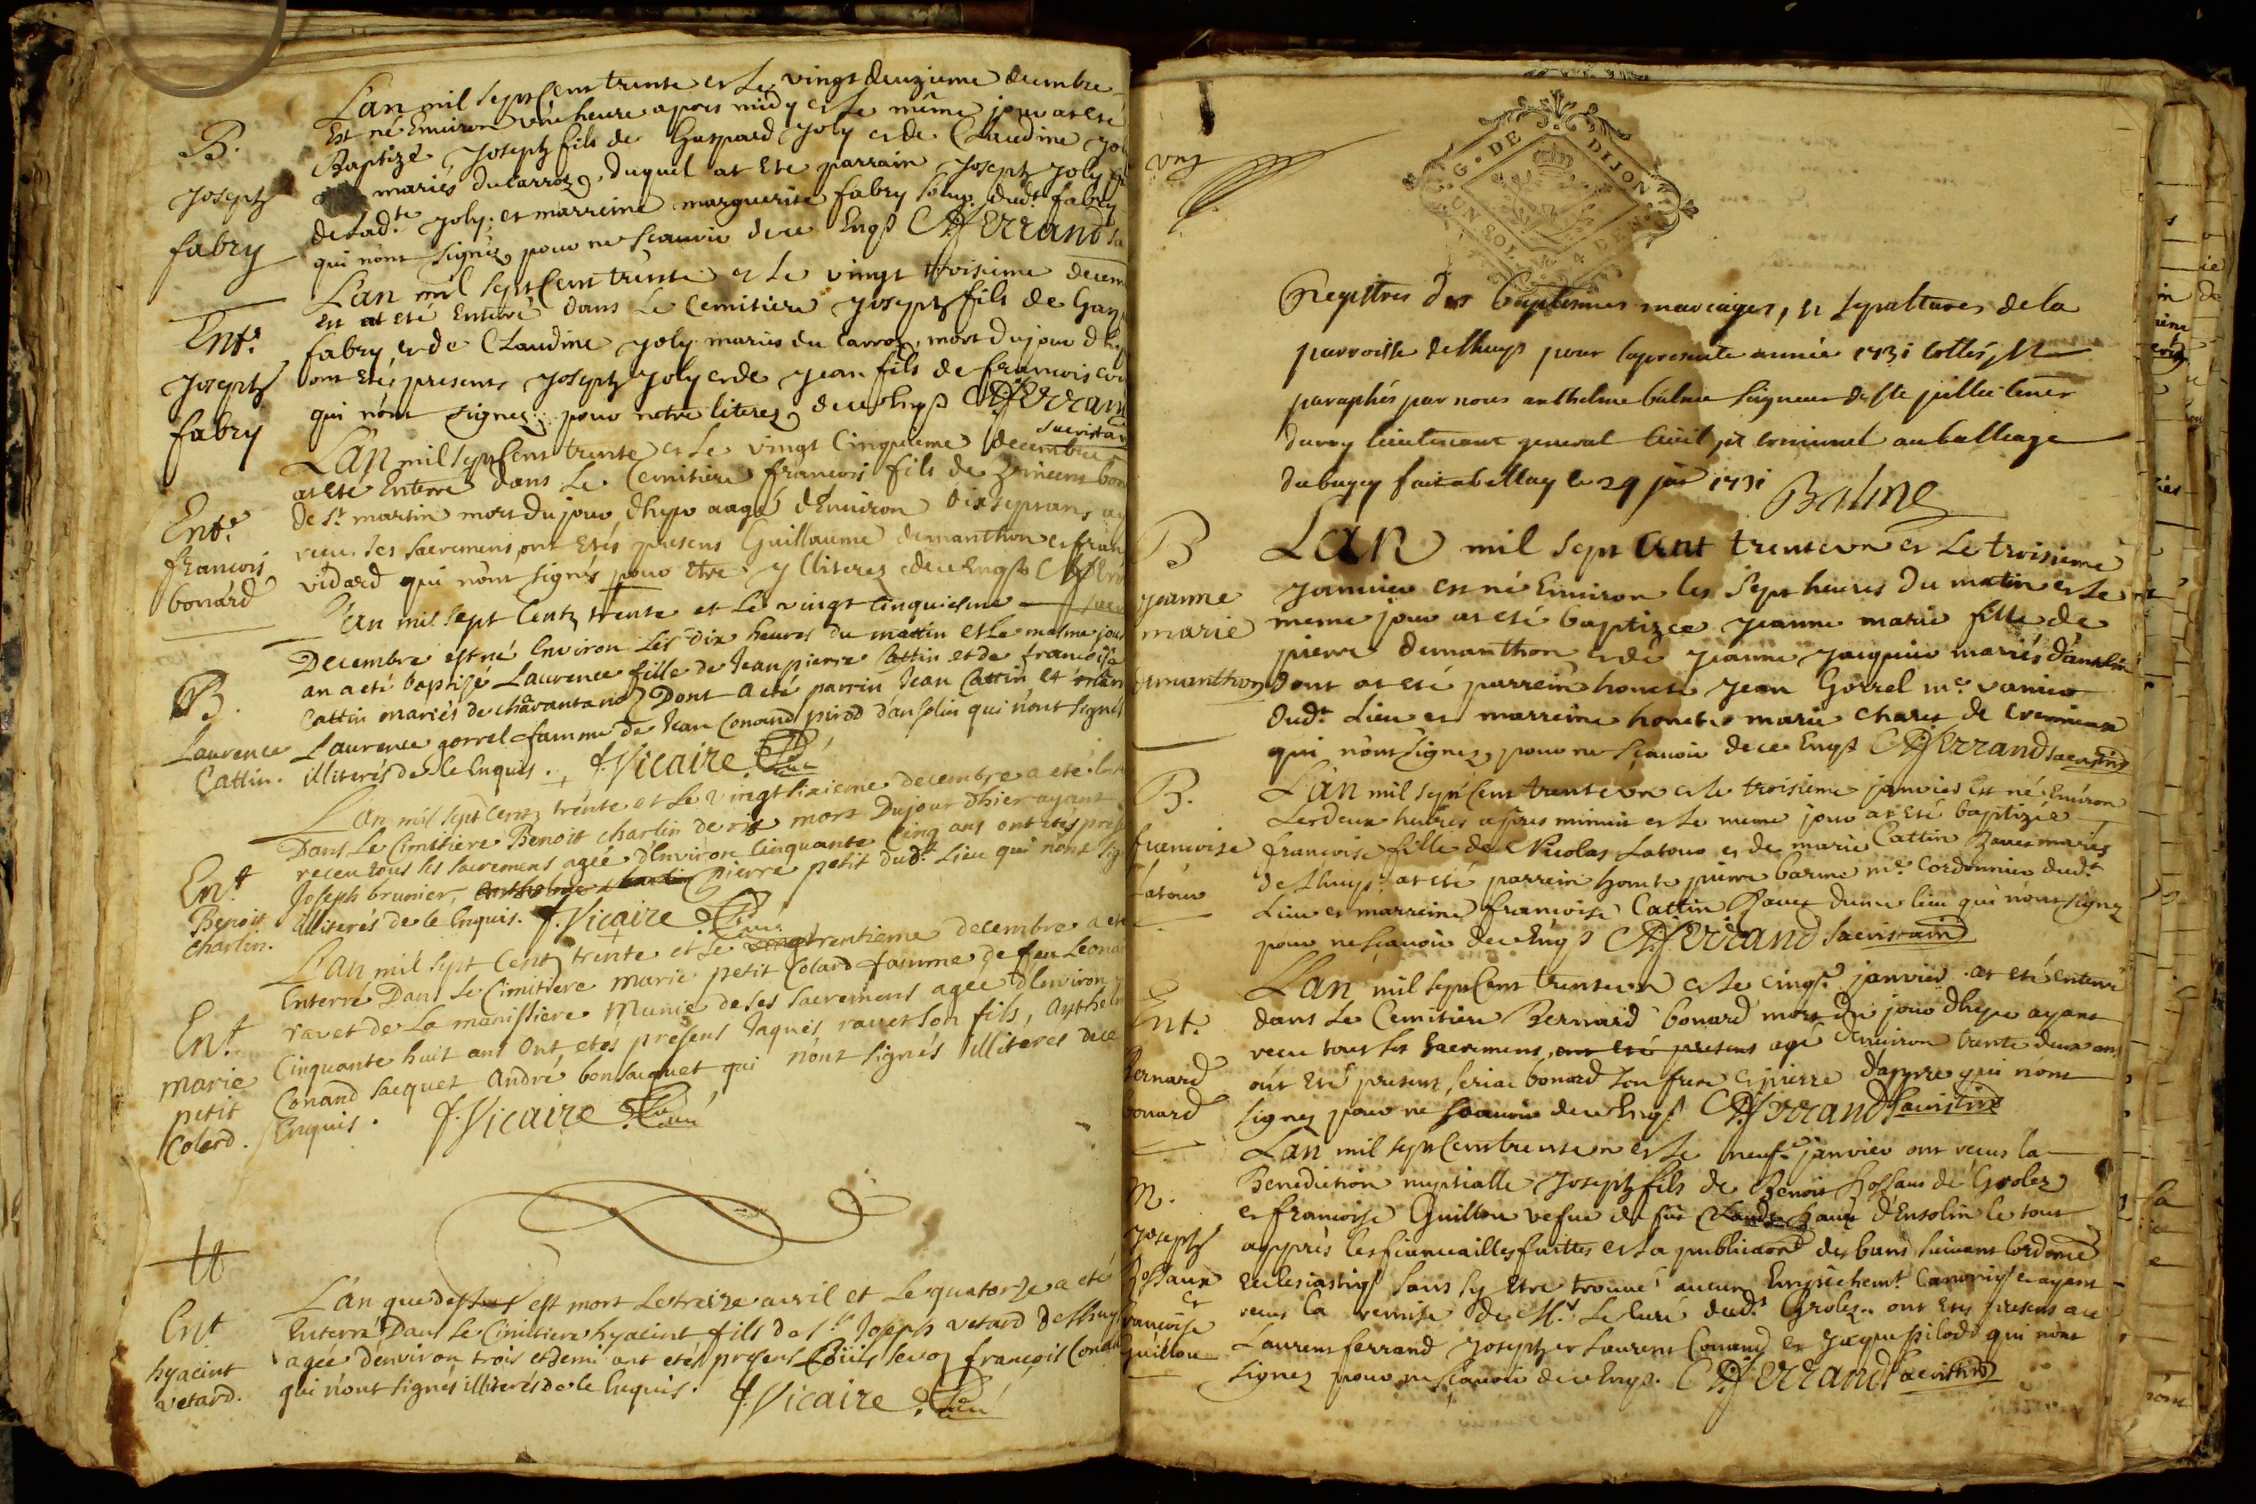 B.
Joseph
fabry
L'an mil sept Cent trente et Le vingt deuzieme decembre
Est né Environ une heure apres midy et Le même jour at esté
Baptizé Joseph fils de Gaspard Joly et de Claudine Jo
mariés du Carroz, duquel at Eté parrain Joseph Joly
de Lad.te Joly, et marreine marguerite fabry dud.t fabry
qui nont signéz pour ne sçavoir de ce Enqs Ferrand
Ent.
Joseph
fabry
L'an mil sept Cent trente et Le vingt troisieme decem
at eté Enterré dans Le Cemitiere Joseph fils de Gas
fabry, et de Claudine Joly mariés du Carroz, mort du jour d'h
ont Etés presents Joseph Joly et de Jean fils de francois
qui nont signez pour netre literez de ce Enqs Ferrand
sacristain
Ent.
francois
bonard
L'an mil sept Cent trente et Le vingt Cinquieme decembre
at Eté Enterré dans Le Cemitiere francois fils de Vincent bon
de St martin mort du jour d'hyer aagé d'Environ dix sept ans ay
receu ses sacremens, ont Etés presens Guillaume demanthon et fran
vidard qui nont signés pour etre yllliterez de ce Enqs Ferr
B.
Laurence
Cattin.
L'an mil sept Centz trente et Le vingt Cinquiesme
Decembre est né Environ Les dix heures du mattin et Le mesme jour
an a eté baptisé Laurence fille de Jean pierre Cattin et de francoise
Cattin mariés de charvantand Dont a eté parrin Jean Cattin et mar
Laurence gorrel famme de Jean Conand pirod d'ansolin qui nont signés
illiterés de Le Enquis. J. Vicaire Curé
Ent
Benoit
charlin.
L'an mil sept Centz trente et Le vingt sixieme decembre a eté
Dans Le Cimitiere Benoit charlin de mort Du jour d'hier ayant
receu tous ses sacremens agée d'Environ Cinquante Cinq ans ont etés pres
Joseph brunier, pierre petit dud.t Lieu qui nont sig
illiterés de le Enquis. J. Vicaire Curé
Ent
marie
petit
Colard.
L'an mil sept Centz trente et Le trentieme decembre a eté
Enterré Dans Le Cimitiere marie petit Colard famme de feu Leonar
ravet de La manissiere Munie de ses sacremens agée d'Environ
Cinquante huit ans Ont etés presens Jaques ravet son fils, Anthel
Conand Jacquet André bon Jacquet qui nont signés illiterés de ce
Enquis. J. Vicaire Curé
Ent
hyacint
vetard.
L'an que dessus est mort Le treize avril et Le quatorze a eté
Enterré Dans Le Cimitiere hyacint fils de Sr Joseph vetard de Lhuys
agée d'environ trois et demi ont etés presens Loüis francois Conan
qui nont signés illiterés de le Enquis. J. Vicaire Curé
G. DE DIJON
UN SOL 4 DEN
Registres des baptemes mariages, et sepultures de la
parroisse de Lhuys pour la presente année 1731 cottés, et
paraphés par nous anthelme balme seigneur de Ste jullie conser
du roy lieutenant general civil, et criminel au bailliage
du bugey fait a bellay le 29 1731
Balme
B
jeanne
marie
demanthon
L'an mil sept cent trente un et Le troisieme
Janvier est né Environ les Sept heures du matin et Le
meme jour at eté baptizée Jeanne marie fille de
pierre demanthon et de Jeanne Jacquier mariés d'ansolin
dont at eté parrein honete Jean Gorrel me
dud.t Lieu et marreine honete marie charet de Cremieux
qui nont signez, pour ne sçavoir de ce Enqs Ferrand sacristin
B.
francoise
Latour
L'an mil sept Cent trente un et le troisieme janvier Est né Environ
Les deux heures apres minuit et Le meme jour at Eté baptizée
francoise fille de Nicolas Latour et de marie Cattin mariés
de Lhuys. at eté parrein honete pierre barme me Cordonnier dud.t
Lieu et marreine françoise Cattin du lieu qui nont signez
pour ne sçavoir de ce Enqs Ferrand sacristain
Ent.
Bernard
bonard
L'an mil sept Cent trente un et Le cinqe janvier at eté enterré
dans Le Cemitiere Bernard bonard mort du jour d'hyer ayant
receu tous ses sacremens, ont eté presens agé d'Environ trente deux ans
ont Eté present bonard son frere et pierre qui nont
signez pour ne sçavoir de ce Enqs Ferrand sacristin
M.
Joseph
et
francoise
Guillou
L'an mil sept Cent trente un et Le neufe janvier ont receu la
Benediction nuptialle Joseph fils de Benoit de Groslez
et francoise Guillou vefue de fut Claude d'Ensolin le tout
apprés les fiancailles faittes et La publicaon des bans suivant lordonce
Eclesiastiqe sans sy etre trouvé aucun Empechemt Canoniqe et ayant
receu La remise de Mr Le Curé dud.t Groslez. ont Etés presens
Laurent ferrand Joseph et Laurent Conand et Jacque pilod qui nont
signez pour ne sçavoir de ce Enqs. Ferrand sacristin